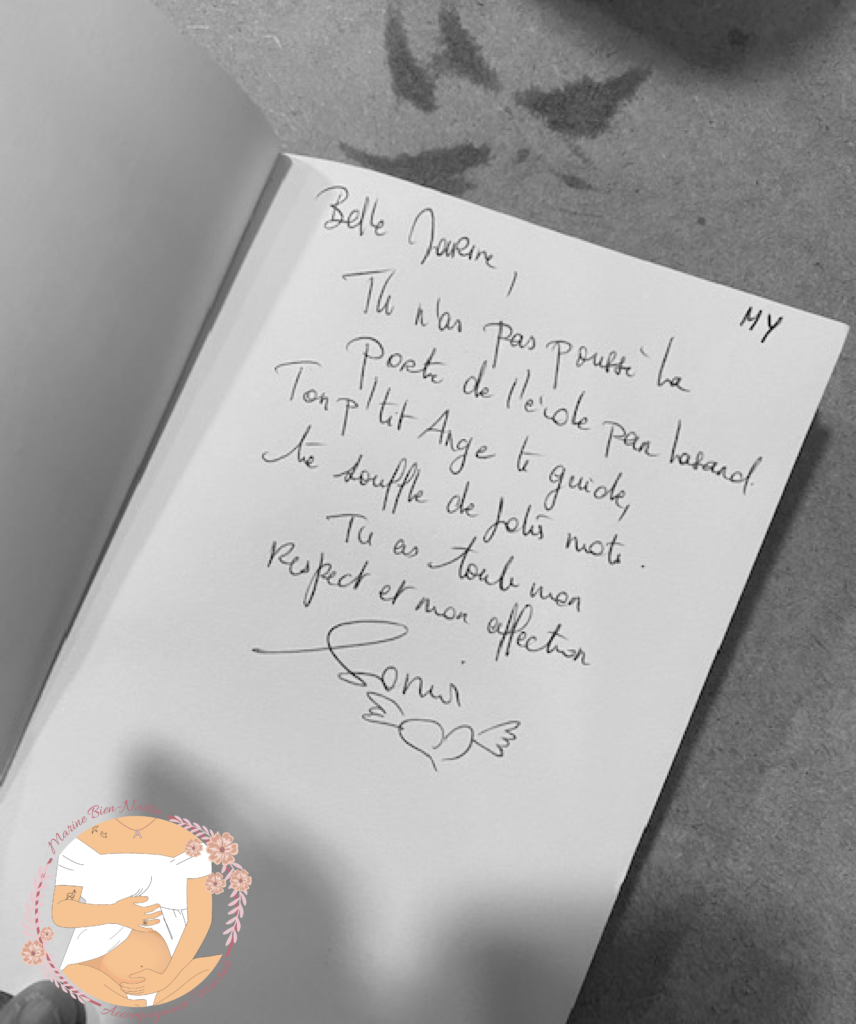 Belle Marine,
MY
Tu n'as pas poussé la
porte de l'école par hasard.
Ton p'tit Ange te guide,
te souffle de jolis mots.
Tu as toute mon
respect et mon affection
Sonia
Marine Bien-Naître